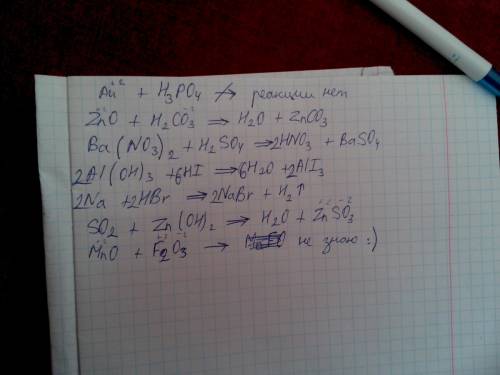 Au⁺² + H₃PO₄ ↛ реакции нет
ZnO⁺²⁻² + H₂CO₃⁻² ⇒ H₂O + ZnCO₃
Ba(NO₃)₂ + H₂SO₄ ⇒ 2HNO₃ + BaSO₄
2Al(OH)₃ + 6HI ⇒ 6H₂O + 2AlI₃
2Na + 2HBr ⇒ 2NaBr + H₂↑
SO₂ + Zn(OH)₂ ⇒ H₂O + Zn⁺²SO₃⁻²
MnO + F₂O₃ → не знаю :)